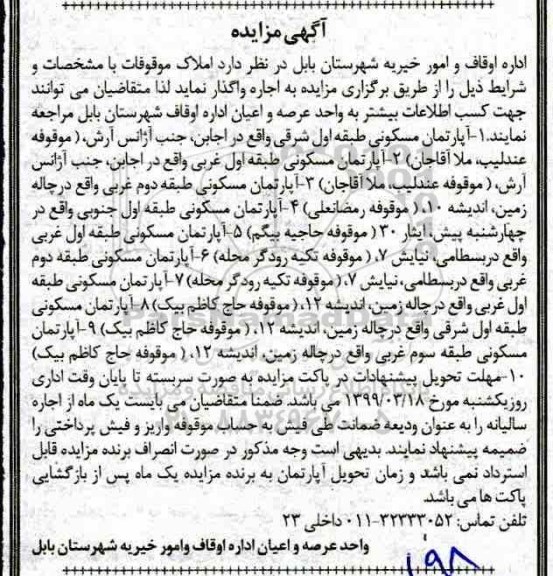 آگهی مزایده
اداره اوقاف و امور خیریه شهرستان بابل در نظر دارد املاک موقوفات با مشخصات و
شرایط ذیل را از طریق برگزاری مزایده به اجاره واگذار نماید لذا متقاضیان می توانند
جهت کسب اطلاعات بیشتر به واحد عرصه و اعیان اداره اوقاف شهرستان بابل مراجعه
نمایند.۱-آپارتمان مسکونی طبقه اول شرقی واقع در اجابن، جنب آژانس آرش، ( موقوفه
عندلیب، ملا آقاجان) ۲-آپارتمان مسکونی طبقه اول غربی واقع در اجابن، جنب آژانس
آرش، ( موقوفه عندلیب، ملا آقاجان) ۳-آپارتمان مسکونی طبقه دوم غربی واقع در چاله
زمین، اندیشه ۱۰، ( موقوفه رمضانعلی) ۴-آپارتمان مسکونی طبقه اول جنوبی واقع در
چهارشنبه پیش، ایثار ۳۰ ( موقوفه حاجیه بیگم) ۵-آپارتمان مسکونی طبقه اول غربی
واقع دربسطامی، نیایش ۷، ( موقوفه تکیه رودگر محله) ۶-آپارتمان مسکونی طبقه دوم
غربی واقع دربسطامی، نیایش ۷، ( موقوفه تکیه رودگر محله) ۷-آپارتمان مسکونی طبقه
اول غربی واقع درچاله زمین، اندیشه ۱۲، ( موقوفه حاج کاظم بیک) ۸-آپارتمان مسکونی
طبقه اول شرقی واقع درچاله زمین، اندیشه ۱۲، ( موقوفه حاج کاظم بیک) ۹-آپارتمان
مسکونی طبقه سوم غربی واقع درچاله زمین، اندیشه ۱۲، ( موقوفه حاج کاظم بیک)
۱۰-مهلت تحویل پیشنهادات در پاکت مزایده به صورت سربسته تا پایان وقت اداری
روز یکشنبه مورخ ۱۳۹۹/۰۳/۱۸ می باشد. ضمنا متقاضیان می بایست یک ماه از اجاره
سالیانه را به عنوان ودیعه ضمانت طی فیش به حساب موقوفه واریز و فیش پرداختی را
ضمیمه پیشنهاد نمایند. بدیهی است وجه مذکور در صورت انصراف برنده مزایده قابل
استرداد نمی باشد و زمان تحویل آپارتمان به برنده مزایده یک ماه پس از بازگشایی
پاکت ها می باشد.
تلفن تماس: ۳۲۳۳۳۰۵۲-۰۱۱ داخلی ۲۳
واحد عرصه و اعیان اداره اوقاف وامور خیریه شهرستان بابل
۱۹۸